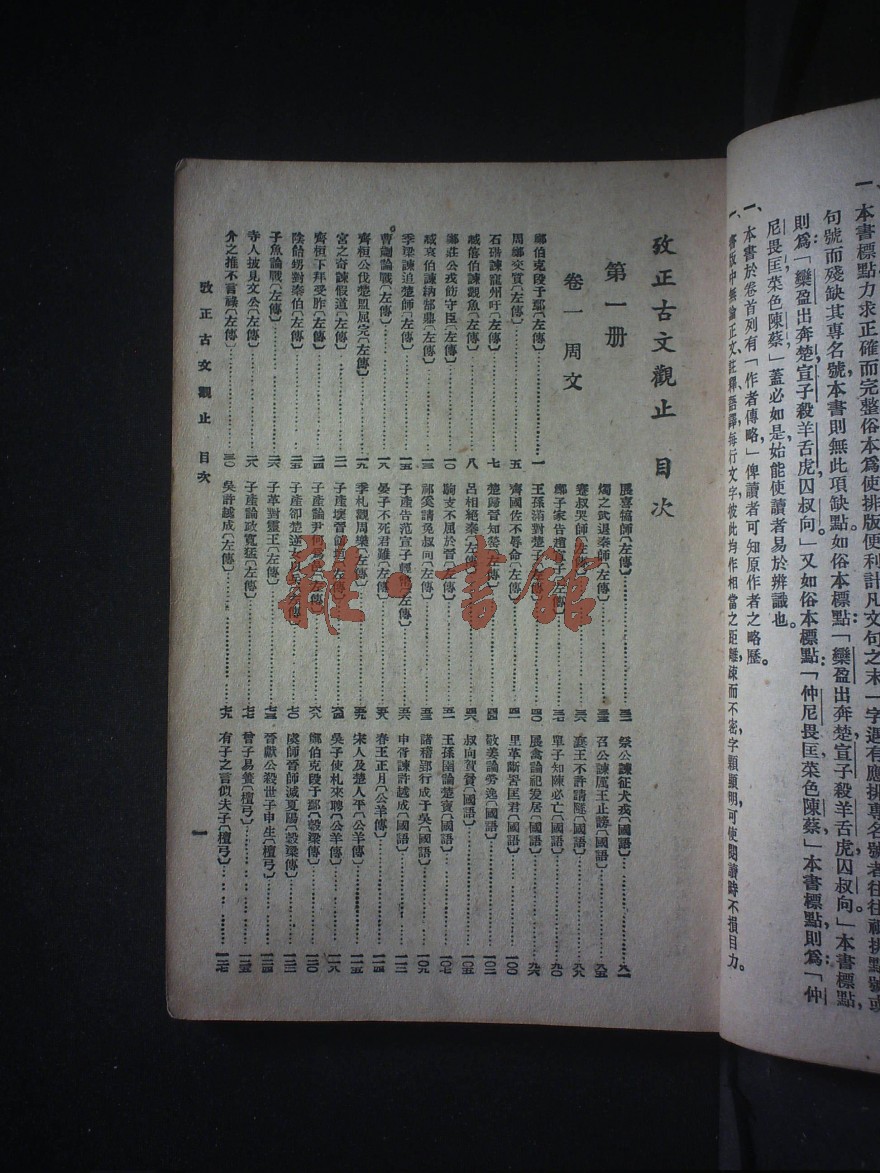 一、本書標點力求正確而完整俗本爲使排版便利計凡文句之末一字遇有應排專名號者往往祇排點號或
句號而殘缺其專名號，本書則無此項缺點如俗本標點「欒盈出奔楚宣子殺羊舌虎囚叔向」本書標點
則爲：「欒盈出奔楚，宣子殺羊舌虎，囚叔向。」又如俗本標點：「仲尼畏匡菜色陳蔡」本書標點則爲：「仲
尼畏匡，菜色陳蔡，」蓋必如是，始能使讀者易於辨識也。
一、本書於卷首列有「作者傳略」俾讀者可知原作者之略歷。
一、書版中無論正文、註釋、語譯，每行文字，彼此均作相當之距離，疎而不密，字顆顯明，可使閱讀時不損目力。
攷正古文觀止 目次
第一册
卷一周文
鄭伯克段于鄢〔左傳〕 一
周鄭交質〔左傳〕 五
石碏諫寵州吁〔左傳〕 七
臧僖伯諫觀魚〔左傳〕 八
鄭莊公戒飭守臣〔左傳〕 一〇
臧哀伯諫納郜鼎〔左傳〕 一三
季梁諫追楚師〔左傳〕 一五
曹劌論戰〔左傳〕 一八
齊桓公伐楚盟屈完〔左傳〕 一九
宮之奇諫假道〔左傳〕 二一
齊桓下拜受胙〔左傳〕 二四
陰飴甥對秦伯〔左傳〕 二五
子魚論戰〔左傳〕 二六
寺人披見文公〔左傳〕 二八
介之推不言祿〔左傳〕 三〇
展喜犒師〔左傳〕 三二
燭之武退秦師〔左傳〕 三三
蹇叔哭師〔左傳〕 三五
鄭子家告趙宣子〔左傳〕 三七
王孫滿對楚子〔左傳〕 四〇
齊國佐不辱命〔左傳〕 四一
楚歸晉知罃〔左傳〕 四四
呂相絕秦〔左傳〕 四六
駒支不屈於晉〔左傳〕 五一
祁奚請免叔向〔左傳〕 五三
子產告范宣子輕幣〔左傳〕 五六
晏子不死君難〔左傳〕 五八
季札觀周樂〔左傳〕 五九
子產壞晉館垣〔左傳〕 六四
子產論尹何爲邑〔左傳〕 六八
子產卻楚逆女以兵〔左傳〕 七〇
子革對靈王〔左傳〕 七三
子產論政寬猛〔左傳〕 七七
吳許越成〔左傳〕 七九
祭公諫征犬戎〔國語〕 九一
召公諫厲王止謗〔國語〕 九五
襄王不許請隧〔國語〕 九八
單子知陳必亡〔國語〕 九〇
展禽論祀爰居〔國語〕 九六
里革斷罟匡君〔國語〕 一〇〇
敬姜論勞逸〔國語〕 一〇二
叔向賀貧〔國語〕 一〇五
王孫圉論楚寶〔國語〕 一〇七
諸稽郢行成于吳〔國語〕 一〇九
申胥諫許越成〔國語〕 一一三
春王正月〔公羊傳〕 一一四
宋人及楚人平〔公羊傳〕 一一五
吳子使札來聘〔公羊傳〕 一一八
鄭伯克段于鄢〔穀梁傳〕 一二〇
虞師晉師滅夏陽〔穀梁傳〕 一二二
晉獻公殺世子申生〔檀弓〕 一二四
曾子易簀〔檀弓〕 一二五
有子之言似夫子〔檀弓〕 一二七
攷正古文觀止 目次
一
雅·書館